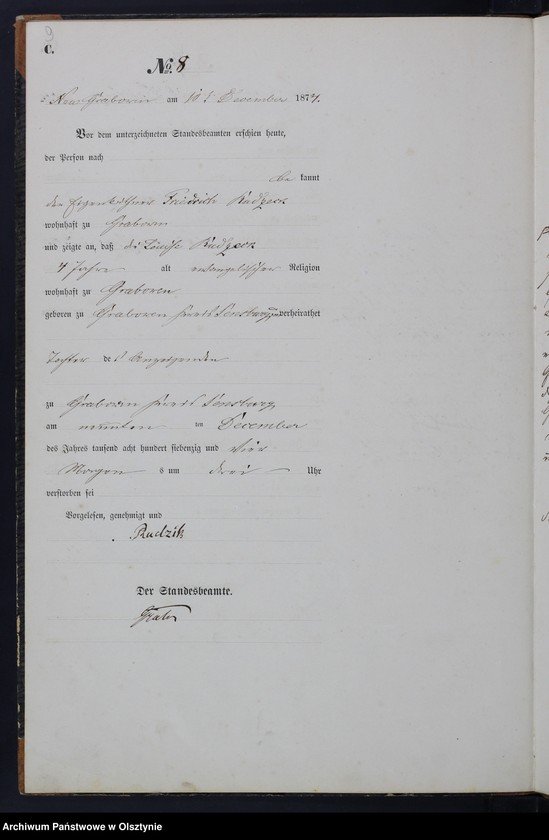 9
C.
No. 8
am 10 t. December 1874.
Vor dem unterzeichneten Standesbeamten erschien heute,
der Person nach
be kannt
der Friedrich Rudzeck
wohnhaft zu Graboven
und zeigte an, daß die Louise Rudzeck
4 Jahre alt evangelischer Religion
wohnhaft zu Graboven
geboren zu Graboven Kreis Sensburg unverheirathet
Tochter des Angezeigenden
zu Graboven Kreis Sensburg
am neunten ten December
des Jahres tausend acht hundert siebenzig und vier
Morgen s um drei Uhr
verstorben sei
Vorgelesen, genehmigt und
Rudzik
Der Standesbeamte.
Archiwum Państwowe w Olsztynie